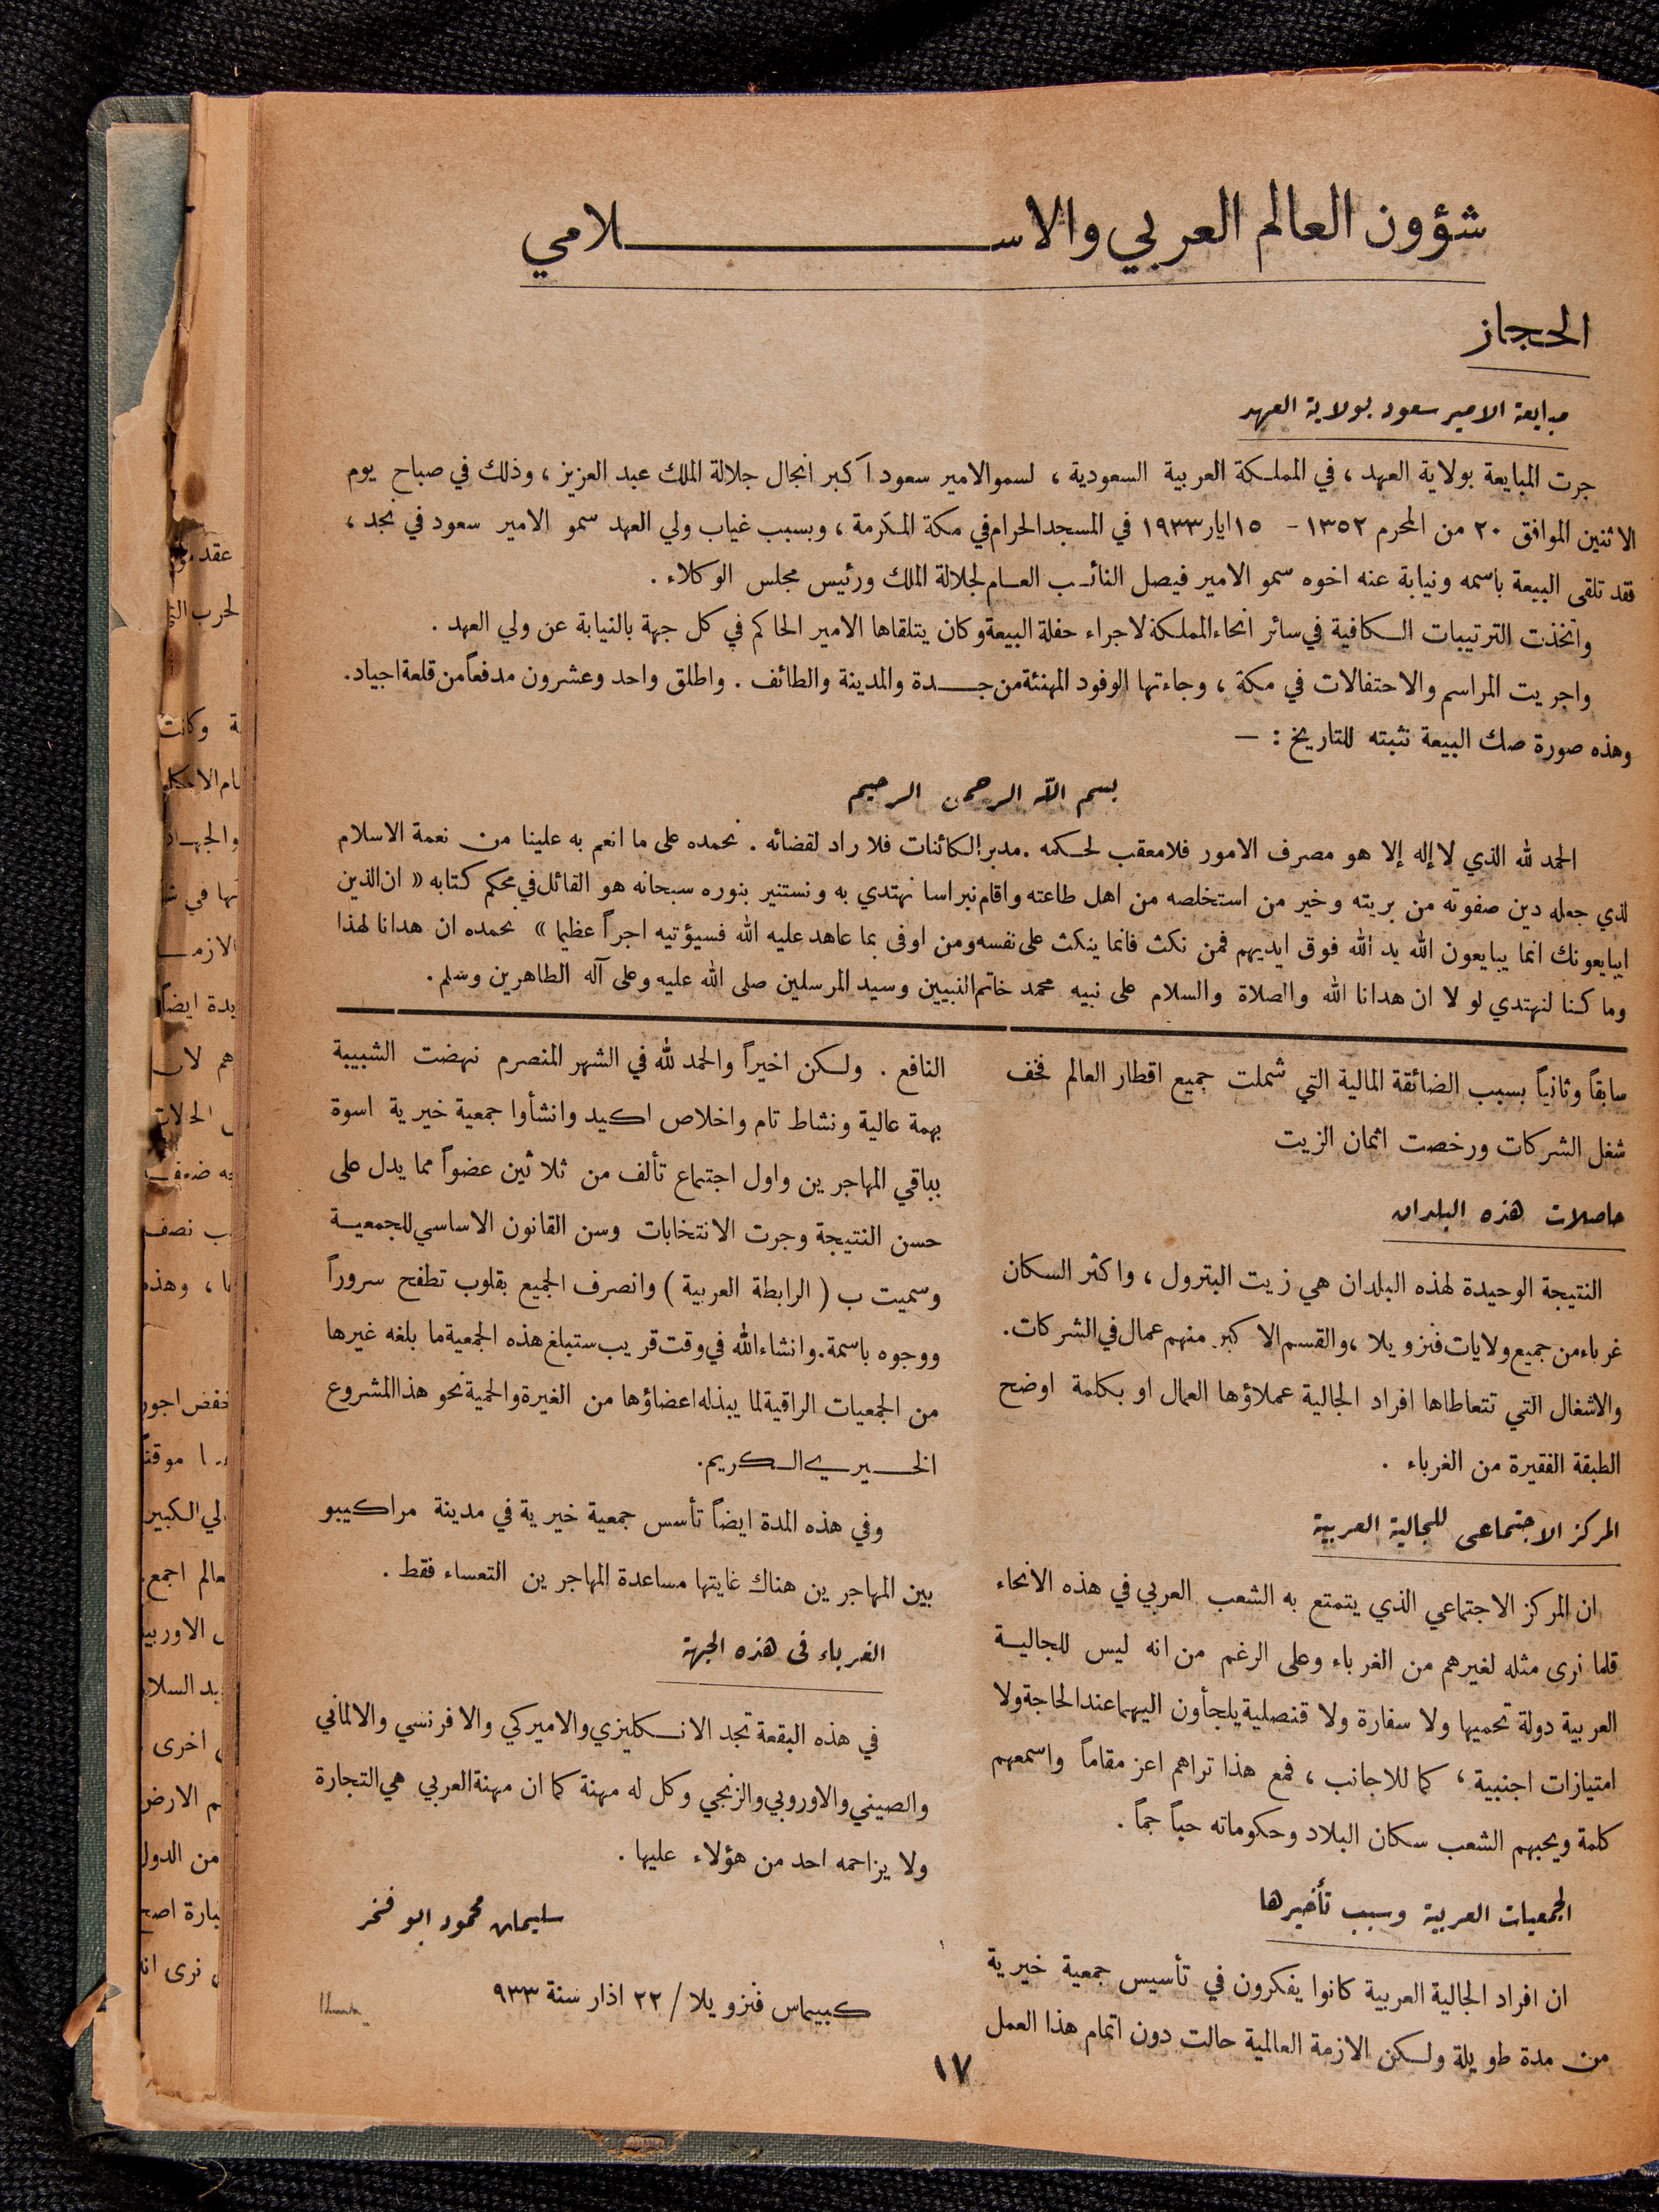 شؤون العالم العربي والاسلامي
الحجاز
مبايعة الامير سعود بولاية العهد
جرت المبايعة بولاية العهد ، في المملكة العربية السعودية ، لسمو الامير سعود اكبر انجال جلالة الملك عبد العزيز ، وذلك في صباح يوم
الاثنين الموافق ٢٠ من المحرم ١٣٥٢ - ١٥ ايار ١٩٣٣ في المسجد الحرام في مكة المكرمة ، وبسبب غياب ولي العهد سمو الامير سعود في نجد ،
فقد تلقى البيعة باسمه ونيابة عنه اخوه سمو الامير فيصل النائب العام لجلالة الملك ورئيس مجلس الوكلاء .
واتخذت الترتيبات الكافية في سائر انحاء المملكة لاجراء حفلة البيعة وكان يتلقاها الامير الحاكم في كل جهة بالنيابة عن ولي العهد .
واجريت المراسم والاحتفالات في مكة ، وجاءتها الوفود المهنئة من جدة والمدينة والطائف . واطلق واحد وعشرون مدفعاً من قلعة اجياد.
وهذه صورة صك البيعة نثبته للتاريخ : —
بسم الله الرحمن الرحيم
الحمد لله الذي لا إله إلا هو مصرف الامور فلا معقب لحكمه . مدبر الكائنات فلا راد لقضائه . نحمده على ما انعم به علينا من نعمة الاسلام
لذي جعله دين صفوته من بريته وخير من استخلصه من اهل طاعته واقام نبراسا نهتدي به ونستنير بنوره سبحانه هو القائل في محكم كتابه « ان الذين
ايبايعونك انما يبايعون الله يد الله فوق ايديهم فمن نكث فانما ينكث على نفسه ومن اوفى بما عاهد عليه الله فسيؤتيه اجراً عظيما » نحمده ان هدانا لهذا
وما كنا لنهتدي لو لا ان هدانا الله والصلاة والسلام على نبيه محمد خاتم النبيين وسيد المرسلين صلى الله عليه وعلى آله الطاهرين وسلم .
سابقاً وثانياً بسبب الضائقة المالية التي شملت جميع اقطار العالم فخف
شغل الشركات ورخصت اثمان الزيت
حاصلات هذه البلدان
النتيجة الوحيدة لهذه البلدان هي زيت البترول ، واكثر السكان
غرباء من جميع ولايات فنزويلا ، والقسم الاكبر منهم عمال في الشركات.
والاشغال التي تتعاطاها افراد الجالية عملاؤها العمال او بكلمة اوضح
الطبقة الفقيرة من الغرباء .
المركز الاجتماعى للجالية العربية
ان المركز الاجتماعي الذي يتمتع به الشعب العربي في هذه الانحاء
قلما نرى مثله لغيرهم من الغرباء وعلى الرغم من انه ليس للجالية
العربية دولة تحميها ولا سفارة ولا قنصلية يلجأون اليهما عند الحاجة ولا
امتيازات اجنبية ، كما للاجانب ، فمع هذا تراهم اعز مقاماً واسمعهم
كلمة ويحبهم الشعب سكان البلاد وحكوماته حباً جماً .
الجمعيات العربية وسبب تأخيرها
ان افراد الجالية العربية كانوا يفكرون في تأسيس جمعية خيرية
من مدة طويلة ولكن الازمة العالمية حالت دون اتمام هذا العمل
النافع . ولكن اخيراً والحمد لله في الشهر المنصرم نهضت الشبيبة
بهمة عالية ونشاط تام واخلاص اكيد وانشأوا جمعية خيرية اسوة
بباقي المهاجرين واول اجتماع تألف من ثلاثين عضواً مما يدل على
حسن النتيجة وجرت الانتخابات وسن القانون الاساسي للجمعية
وسميت ب ( الرابطة العربية ) وانصرف الجميع بقلوب تطفح سروراً
ووجوه باسمة . وانشاء الله في وقت قريب ستبلغ هذه الجمعية ما بلغه غيرها
من الجمعيات الراقية لما يبذله اعضاؤها من الغيرة والحمية نحو هذا المشروع
الخيري الكريم.
وفي هذه المدة ايضاً تأسس جمعية خيرية في مدينة مراكيبو
بين المهاجرين هناك غايتها مساعدة المهاجرين التعساء فقط .
الغرباء فى هذه الجهة
في هذه البقعة تجد الانكليزي والاميركي والافرنسي والالماني
والصيني والاوروبي والزنجي وكل له مهنة كما ان مهنة العربي هي التجارة
ولا يزاحمه احد من هؤلاء عليها .
سليمان محمود ابو فخر
كبيماس فنزويلا / ٢٢ اذار سنة ٩٣٣
١٧